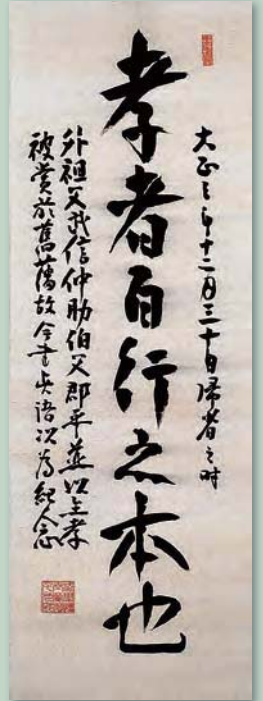 大正年十二月三十日帰省之时
孝者百行之本也
外祖父我信仲助伯父郡平並以至孝
被賞於舊藩故今書此語以為紀念